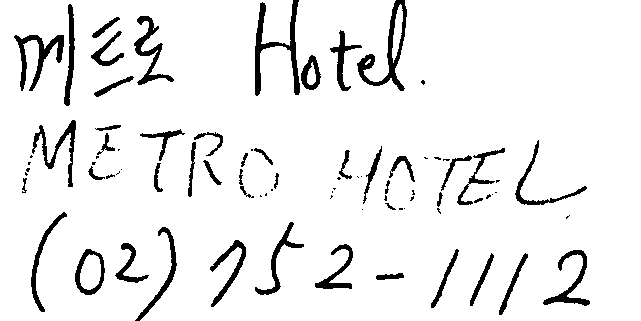 메트로 Hotel.
METRO HOTEL
(02) 752-1112